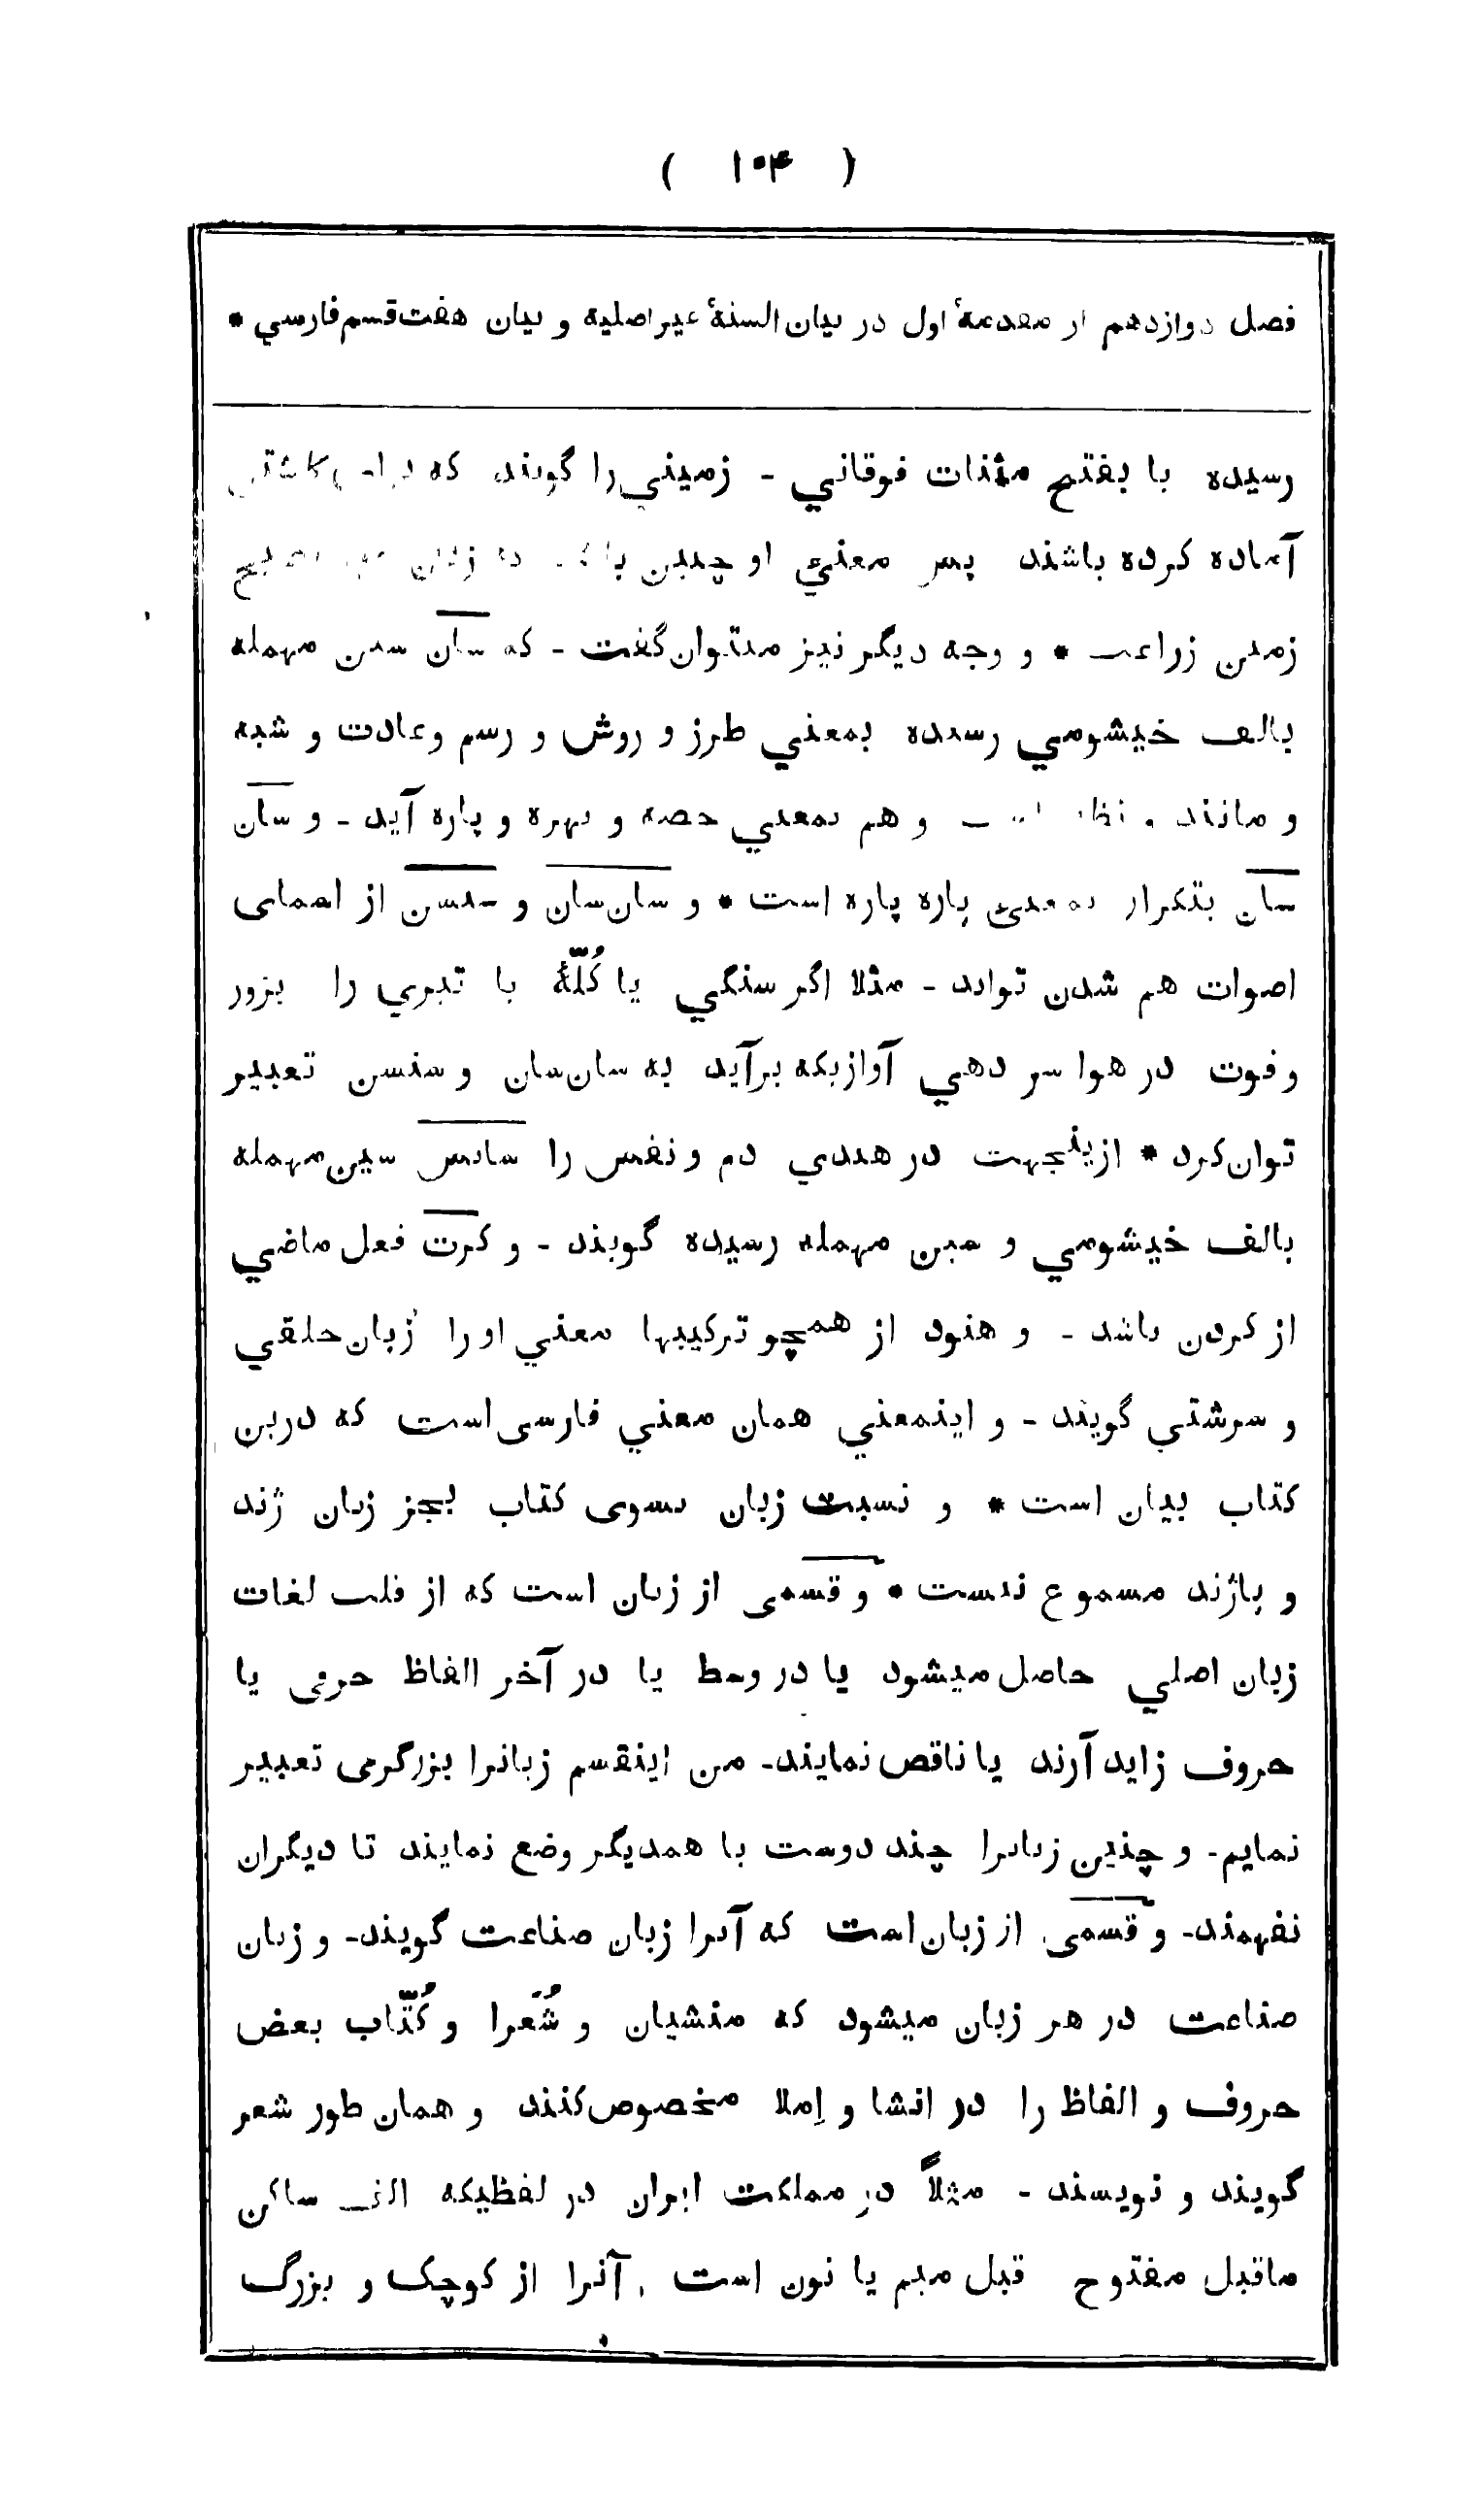 ( ۱۰۴ )
فصل دوازدهم از مقدمهٔ اول در بیان السنهٔ غیر اصلیه و بیان هفت قسم فارسي *
رسیده با بفتح مثنات فوقاني - زمیني را گویند که
آماده کرده باشند پس معنيء او چنین زبان
زمین زراعت * و وجه دیگر نیز میتوان گفت - که سان سین مهمله
بالف خیشومي رسیده بمعني طرز و روش و رسم و عادت و شبه
و مانند و است و هم بمعني حصه و بهره و پاره آید - و سان
سان بتکرار بمعنی پاره پاره است * و سان سان و سنسن از اسمای
اصوات هم شدن تواند - مثلا اگر سنگي یا کُلّهٔ با تبري را بزور
و قوت در هوا سر دهي آوازیکه برآید به سان سان و سنسن تعبیر
توان کرد * ازینجهت در هندي دم و نفس را سانس سین مهمله
بالف خیشومي و سین مهمله رسیده گویند - و کرت فعل ماضي
از کردن باشد - و هنود از همچو ترکیبها معني او را زبان خلقي
و سرشتي گویند - و اینمعني همان معني فارسی است که درین
کتاب بیان است * و نسبت زبان بسوی کتاب بجز زبان ژند
و پاژند مسموع نیست * و قسمی از زبان است که از قلب لغات
زبان اصلي حاصل میشود یا در وسط یا در آخر الفاظ حرفی یا
حروف زاید آرند یا ناقص نمایند - من اینقسم زبانرا بزرگری تعبیر
نمایم - و چنین زبانرا چند دوست با همدیگر وضع نمایند تا دیگران
نفهمند - و قسمی از زبان است که آنرا زبان صناعت گویند - و زبان
صناعت در هر زبان میشود که منشیان و شُعَرا و کُتّاب بعض
حروف و الفاظ را در انشا و اِملا مخصوص کنند و همان طور شعر
گویند و نویسند - مثلاً در مملکت ایران در لفظیکه الف ساکن
ماقبل مفتوح قبل میم یا نون است آنرا از کوچک و بزرگ